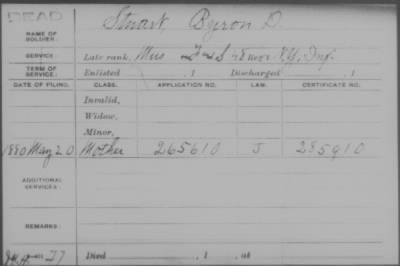 DEAD
NAME OF SOLDIER: Stuart, Byron D.
SERVICE: Late rank, Mus F & S 48 Regt N.Y. Inf.
TERM OF SERVICE: Enlisted , 1 Discharged , 1
DATE OF FILING. CLASS. APPLICATION NO. LAW. CERTIFICATE NO.
Invalid,
Widow,
Minor,
1880 May 20 Mother 265610 J 285910
ADDITIONAL SERVICES:
REMARKS:
Died , 1 , at